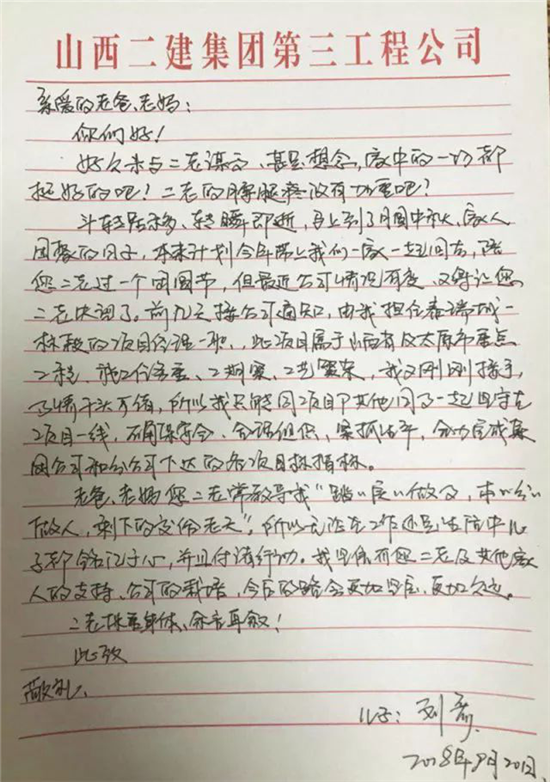 山西二建集团第三工程公司
亲爱的老爸、老妈：
你们好！
好久未与二老谋面、甚是想念，家中的一切都
挺好的吧？二老的腰腿疼没有加重吧？
斗转星移、转瞬即逝，马上到了月圆中秋、家人
团聚的日子，本来计划今年带上我们一家一起回去，陪
您二老过一个团圆节，但最近公司情况有变，又得让您
二老失望了。前几天接公司通知，由我担任
的项目经理一职，此项目属于山西省及太原市重点
工程，施工任务重、工期紧、工艺繁杂，我又刚刚接手，
事情千头万绪，所以我只能同项目部其他同事一起坚守在
项目一线，确保安全、合理组织、紧抓生产，全力完成集
团公司和分公司下达的各项目标指标。
老爸、老妈您二老常教导我“踏踏实实做事，本本分分
做人，剩下的交给老天”，所以无论在工作还是生活中儿
子都铭记于心，并且付诸行动。我坚信有您二老及其他家
人的支持、公司的栽培，今后的路会更加坚定、更加久远。
二老保重身体、余言再叙！
此致
敬礼、
儿子：刘
2018年9月20日